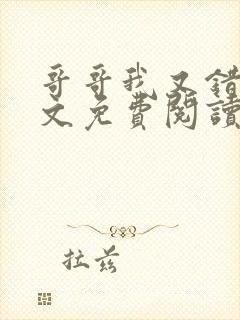 哥哥我又錯
文免費閱讀
拉茲